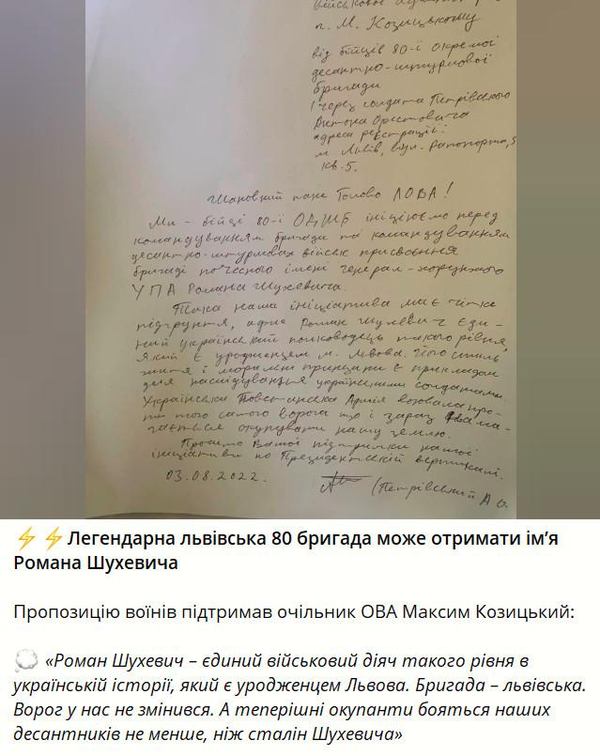 військової
п. М. Козицькому
від бійців 80-ї окремої
десантно-штурмової
бригади
(через солдата Петрівського
Антона Орестовича
адреса реєстрації:
м. Львів, вул. Рапопорта,
кв. 5.
Шановний пане Голово ЛОВА!
Ми - бійці 80-ї ОДШБ ініціюємо перед
командуванням бригади та командуванням
десантно-штурмових військ присвоєння
бригаді почесного імені генерал-хорунжого
УПА Романа Шухевича.
Така наша ініціатива має чітке
підґрунтя, адже Роман Шухевич єди-
ний український полководець такого рівня,
який є уродженцем м. Львова. Його стиль
життя і моральні принципи є прикладом
для наслідування українськими солдатами.
Українська Повстанська Армія воювала про-
ти того самого ворога що і зараз нама-
гається окупувати нашу землю.
Просимо Вашої підтримки нашої
ініціативи по Президентській вертикалі.
03.08.2022. (Петрівський А О.
⚡⚡Легендарна львівська 80 бригада може отримати ім’я
Романа Шухевича
Пропозицію воїнів підтримав очільник ОВА Максим Козицький:
💭 «Роман Шухевич – єдиний військовий діяч такого рівня в
українській історії, який є уродженцем Львова. Бригада – львівська.
Ворог у нас не змінився. А теперішні окупанти бояться наших
десантників не менше, ніж сталін Шухевича»